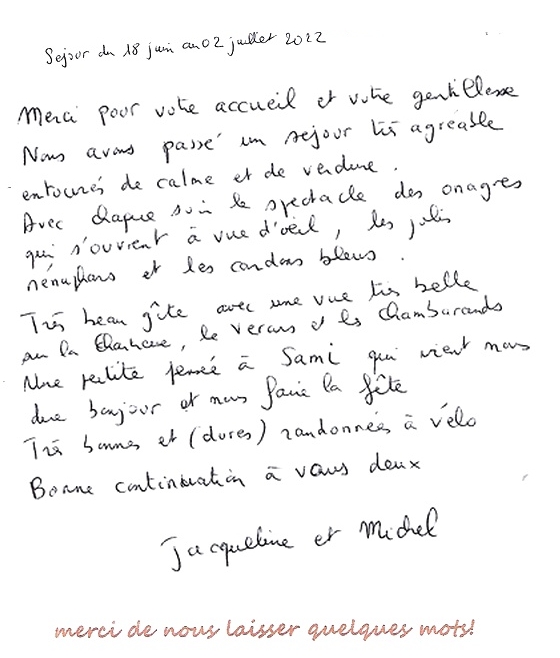 Sejour du 18 juin au 02 juillet 2022
Merci pour votre accueil et votre gentillesse
Nous avons passé un sejour très agréable
entourés de calme et de verdure.
Avec chaque soir le spectacle des onagres
qui s'ouvrent à vue d'oeil, les jolis
nénuphars et les cardons bleus.
Très beau gîte avec une vue très belle
sur la Chartreuse, le Vercors et les Chambarands
Une petite pensée à Sami qui vient nous
dire bonjour et nous faire la fête
Très bonnes et (dures) randonnées à vélo
Bonne continuation à vous deux
Jacqueline et Michel
merci de nous laisser quelques mots!